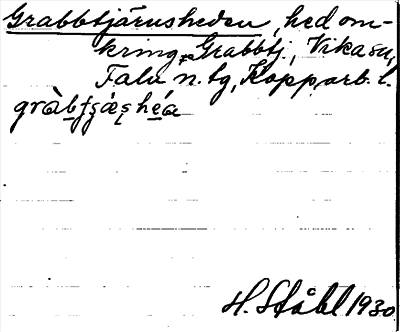 Grabbtjärnsheden, hed om-
kring Grabbtj., Vika sn,
Falu n. tg, Kopparb. l.
gràbʃʂæ̨she̱a
H. Ståhl 1930